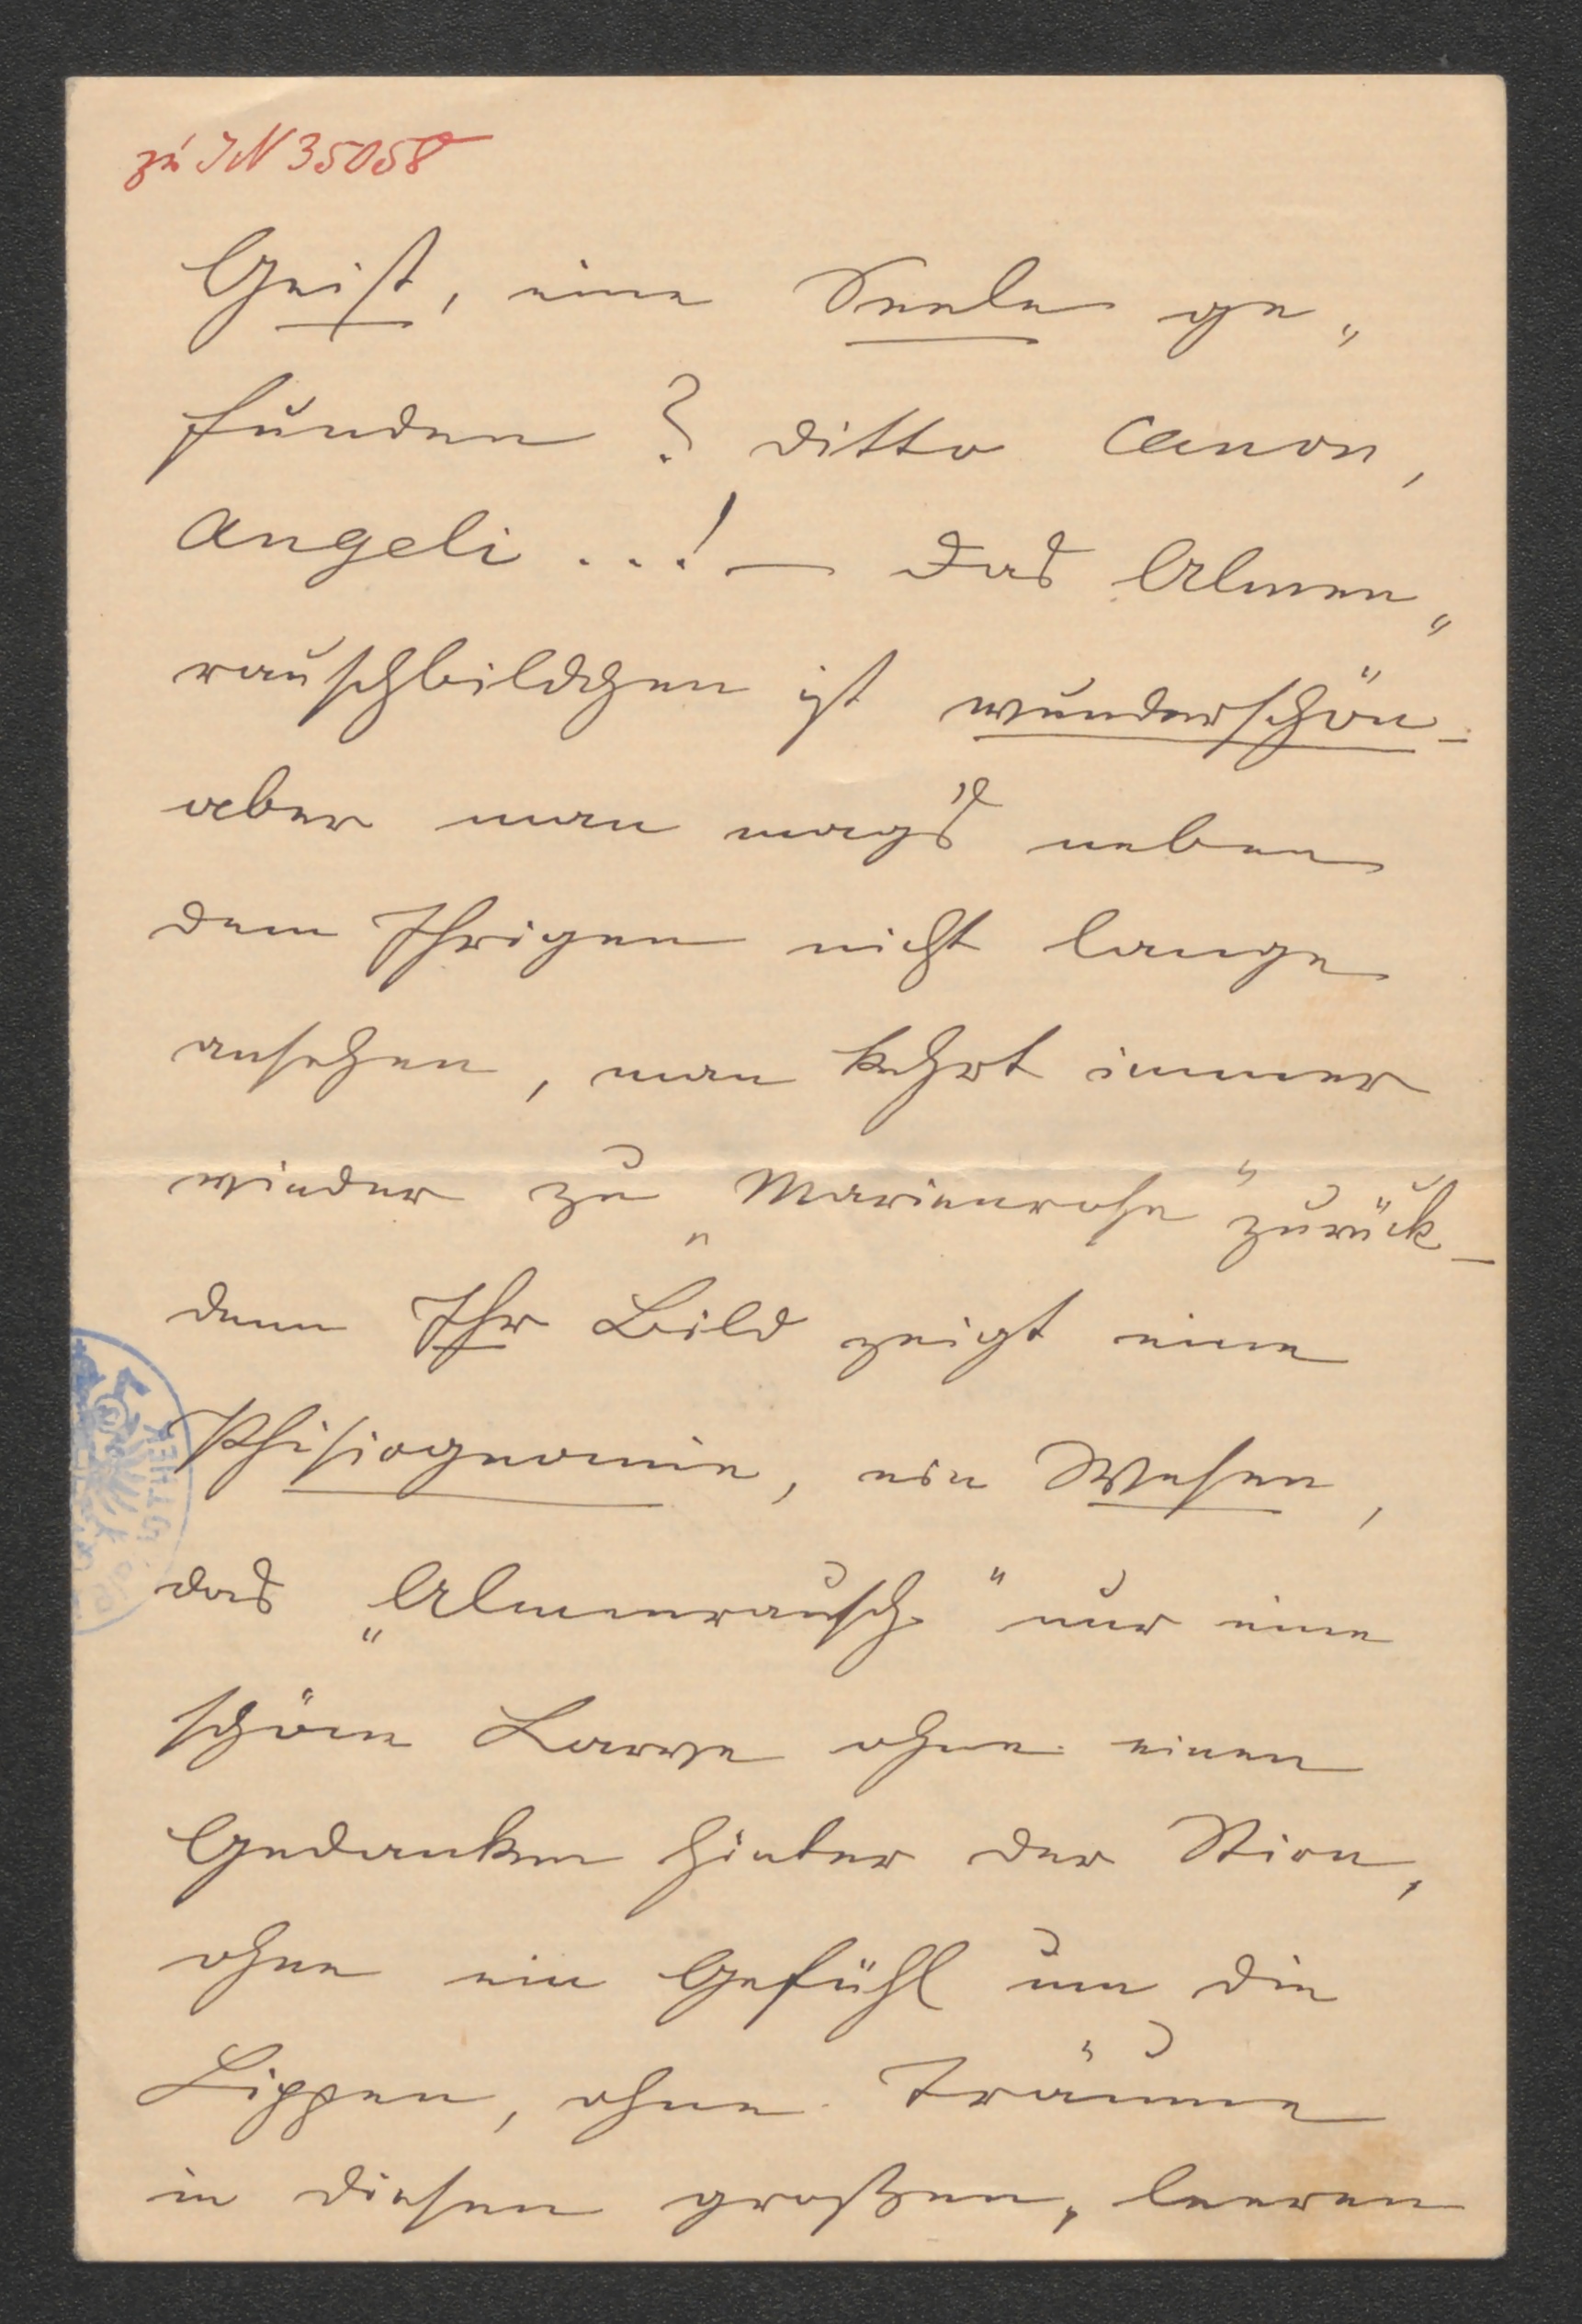 zu IN 35058
Geist, eine Seele ge„
funden? ditto Canon,
Angeli ...! — Das Almen„
rauschbildchen ist wunderschön –
aber man mag's neben
dem Ihrigen nicht lange
ansehen, man kehrt immer
wieder zu „Marienrose" zurück –
denn Ihr Bild zeigt eine
Phisiognomie, ein Wesen,
das „Almenrausch" nur eine
schöne Larve ohne einen
Gedanken hinter der Stirn,
ohne ein Gefühl um die
Lippen, ohne Träume
in diesen großen, leeren